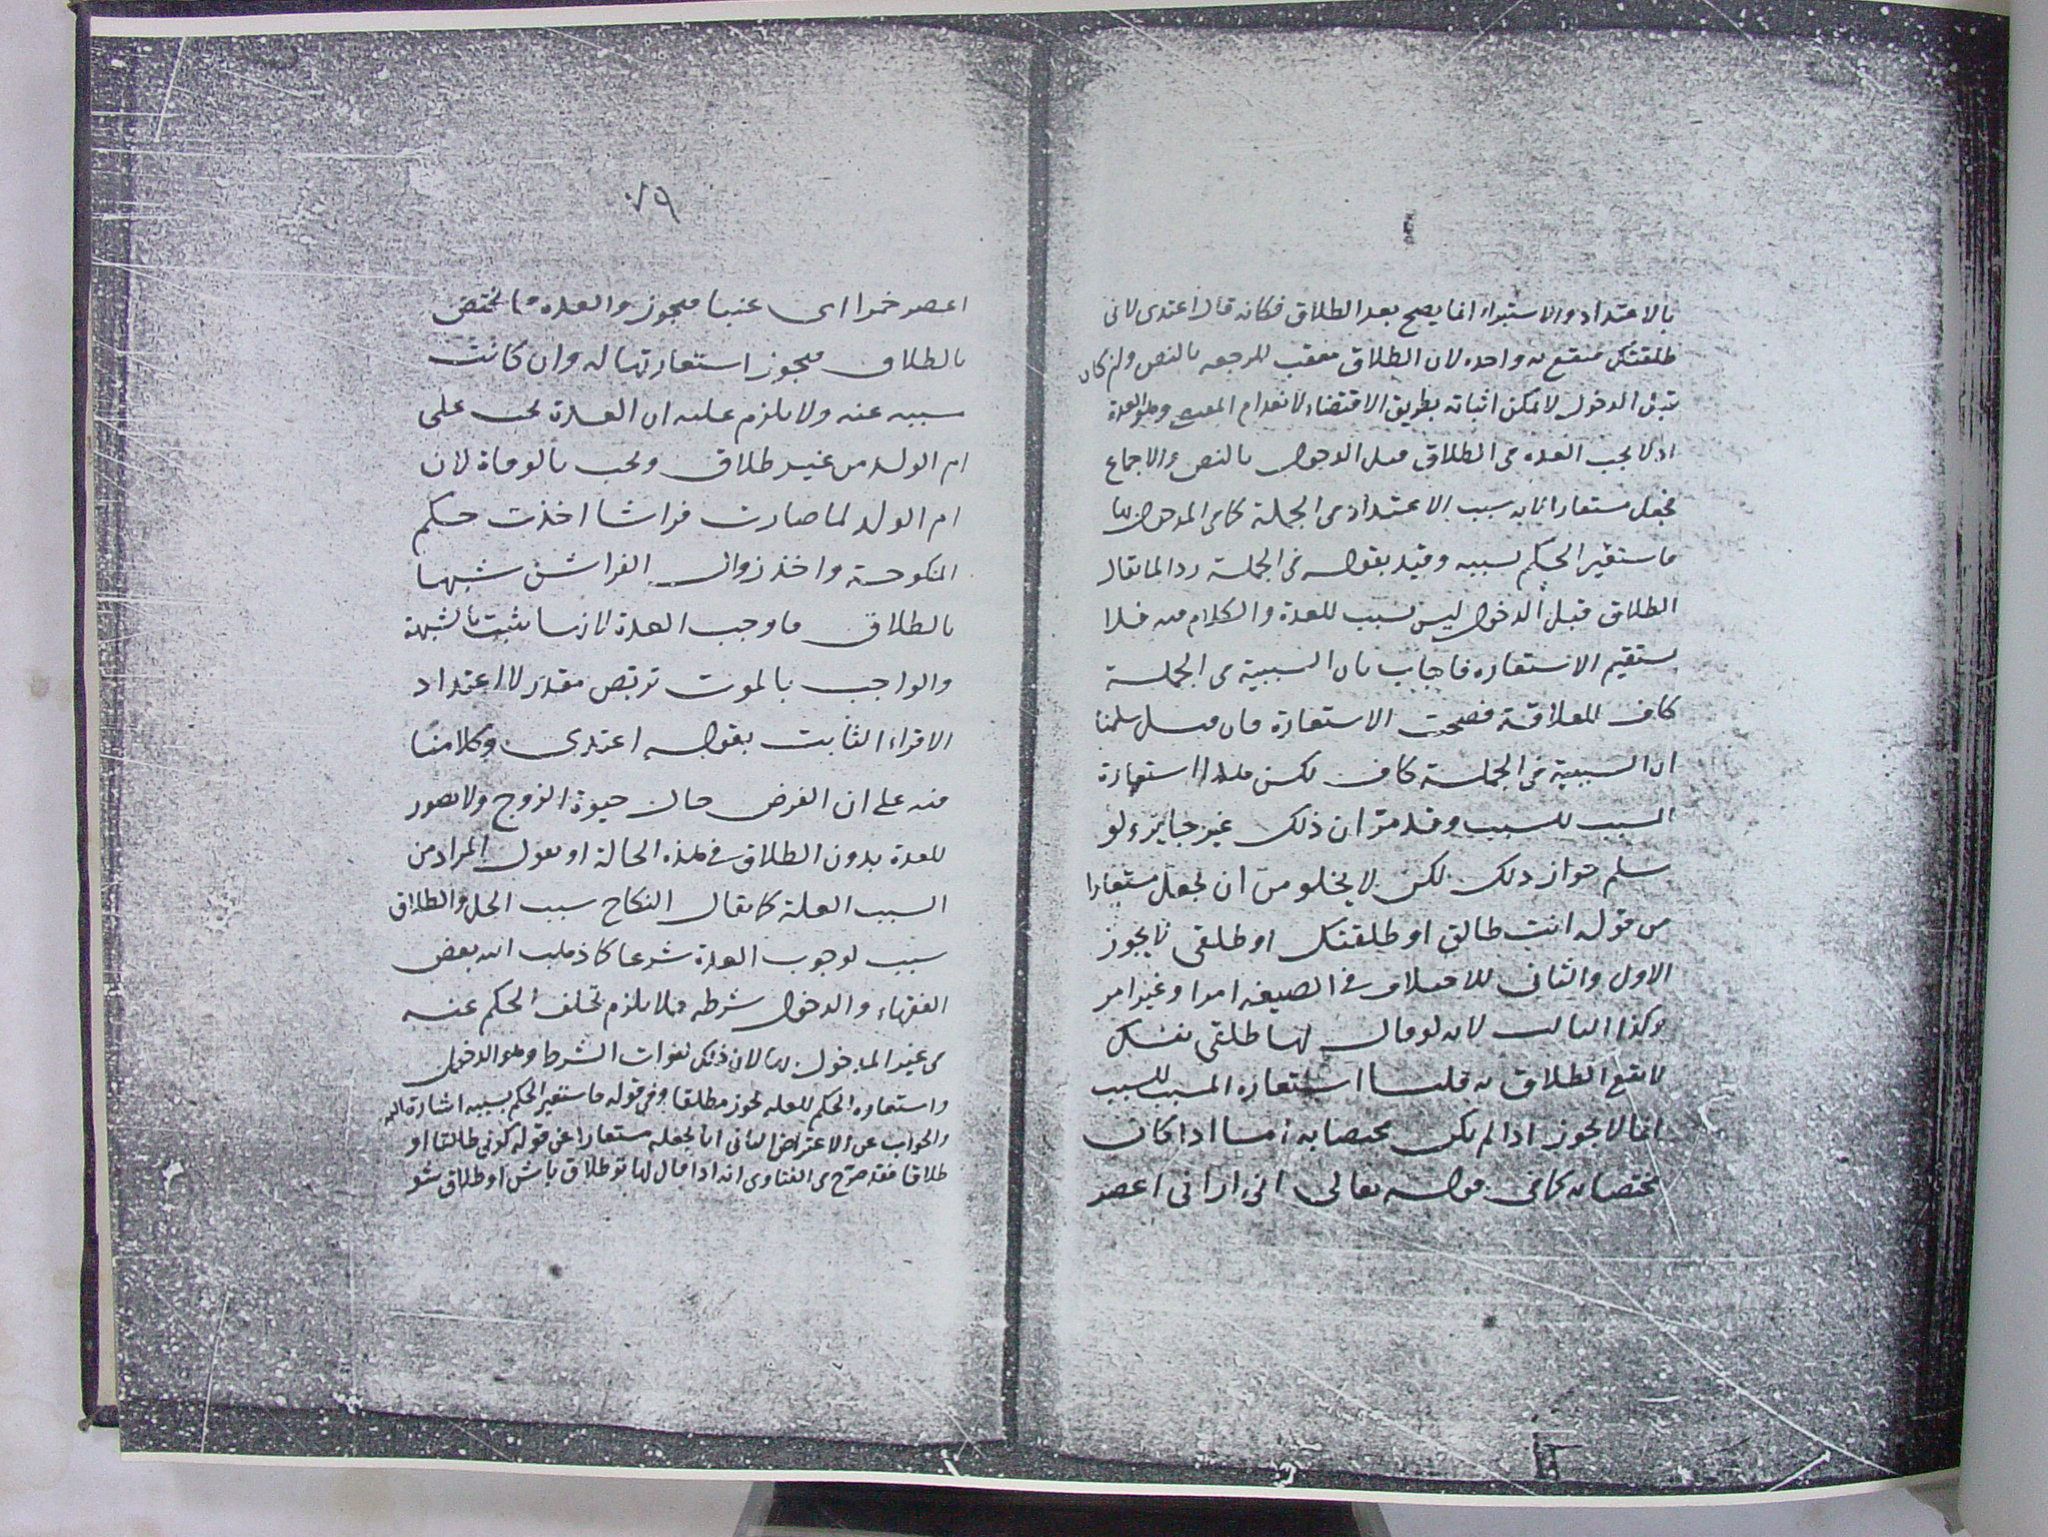 بالاعتداد والاستبراء انما يصح بعد الطلاق فكانه قال اعتدى لانى
طلقتك فيقع به واحده لان الطلاق معقب للرجعه بالنص ولن كان
قبل الدخول لا يمكن اثباته بطريق الاقتضاء لانعدام وهو العدة
اذ لا يجب العده فى الطلاق قبل الدخول بالنص والاجماع
فجعل مستعارا لانه سبب الاعتداد فى الجملة كما فى المدخول بها
فاستقير الحكم لسببه وقيد بقوله فى الجملة ردا لما يقال
الطلاق قبل الدخول ليس بسبب للعدة والكلام فيه فلا
يستقيم الاستعاره فاجاب بان السببية فى الجملة
كاف للعلاقة فصحت الاستعارة فان قيل سلمنا
ان السببية فى الجملة كاف لكن هذا استعارة
المسبب للسبب وقد مر ان ذلك غير جايز ولو
سلم جواز ذلك لكن لا يخلو من ان يجعل مستعارا
من قوله انت طالق او طلقتك او طلقى لا يجوز
الاول والثانى للاختلاف فى الصيغه امرا وغير امر
وكذا الثالث لانه لو قال لها طلقى نفسك
لا يقع الطلاق به قلنا استعاره المسبب للسبب
انما لا يجوز اذا لم يكن مختصا به اما اذا كان
مختصا به كما فى قوله تعالى انى ارانى اعصر
٧٩
اعصر خمرا اى عنبا فيجوز والعده مما يختص
بالطلاق فيجوز استعارتها له وان كانت
سببه عنه ولا يلزم عليه ان العدة يجب على
ام الولد من غير طلاق ويجب بالوفاة لان
ام الولد لما صارت فراشا اخذت حكم
المنكوحة واخذ زوال الفراش شبها
بالطلاق فاوجب العدة لانها يثبت بالشبهة
والواجب بالموت تربص مقدر لا اعتداد
الاقراء الثابت بقوله اعتدى وكلامنا
فيه على ان الفرض حال حيوة الزوج ولا تصور
للعدة بدون الطلاق فى هذه الحالة او نقول المراد من
السبب العلة كما يقال النكاح سبب الحل والطلاق
سبب لوجوب العدة شرعا كما ذهب اليه بعض
الفقهاء والدخول شرطه فلا يلزم تخلف الحكم عنه
فى غير المدخول بها لان ذلك لفوات الشرط وهو الدخول
واستعاره الحكم للعله يجوز مطلقا وفى قوله فاستعير الحكم بسببه اشارة اليه
والجواب عن الاعتراض الثانى انا نجعله مستعارا عن قوله كونى طالقا او
طلاقا فقد صرح فى الفتاوى انه اذا قال لها تو طلاق باش او طلاق شو